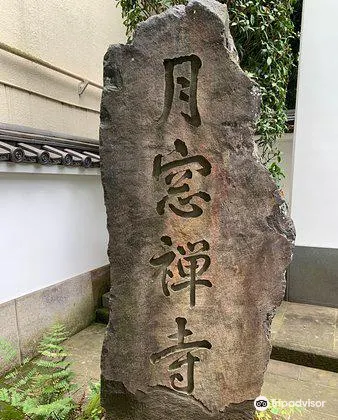 月窓禅寺
Tripadvisor